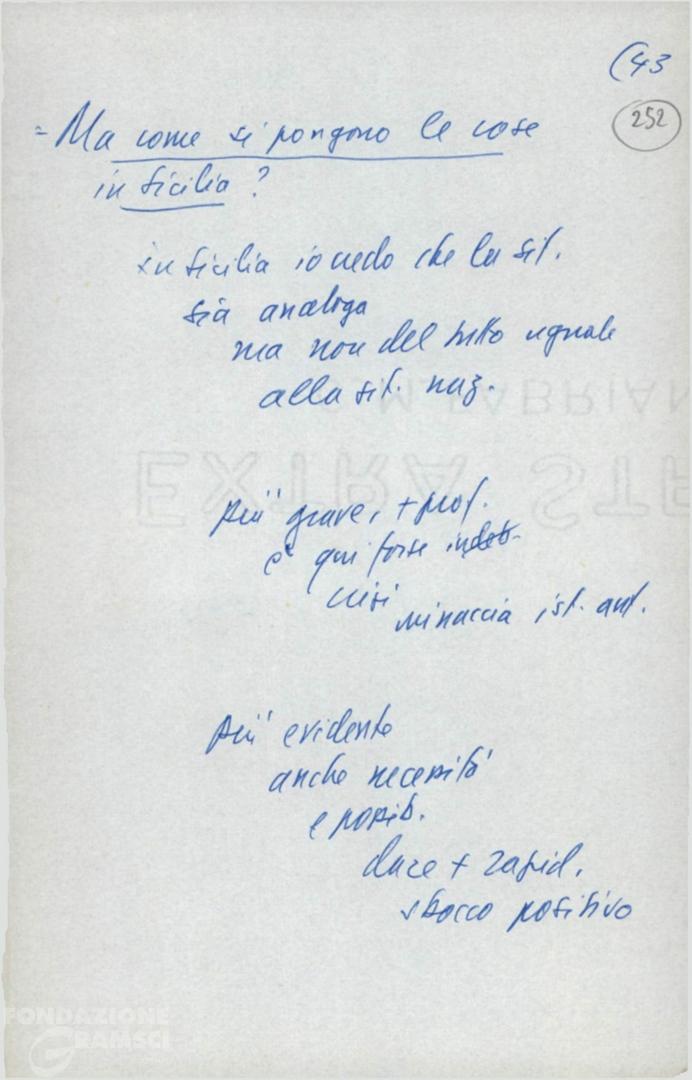 (43
252
= Ma come si pongono le cose
in Sicilia?
in Sicilia io credo che la sit.
sia analoga
ma non del tutto uguale
alla sit. naz.
più grave, + prof.
è qui forse
crisi
minaccia ist. aut.
più evidente
anche necessità
e possib.
dare + rapid.
sbocco positivo
C.M. FABRIAN
EXTRA ST
FONDAZIONE
GRAMSCI